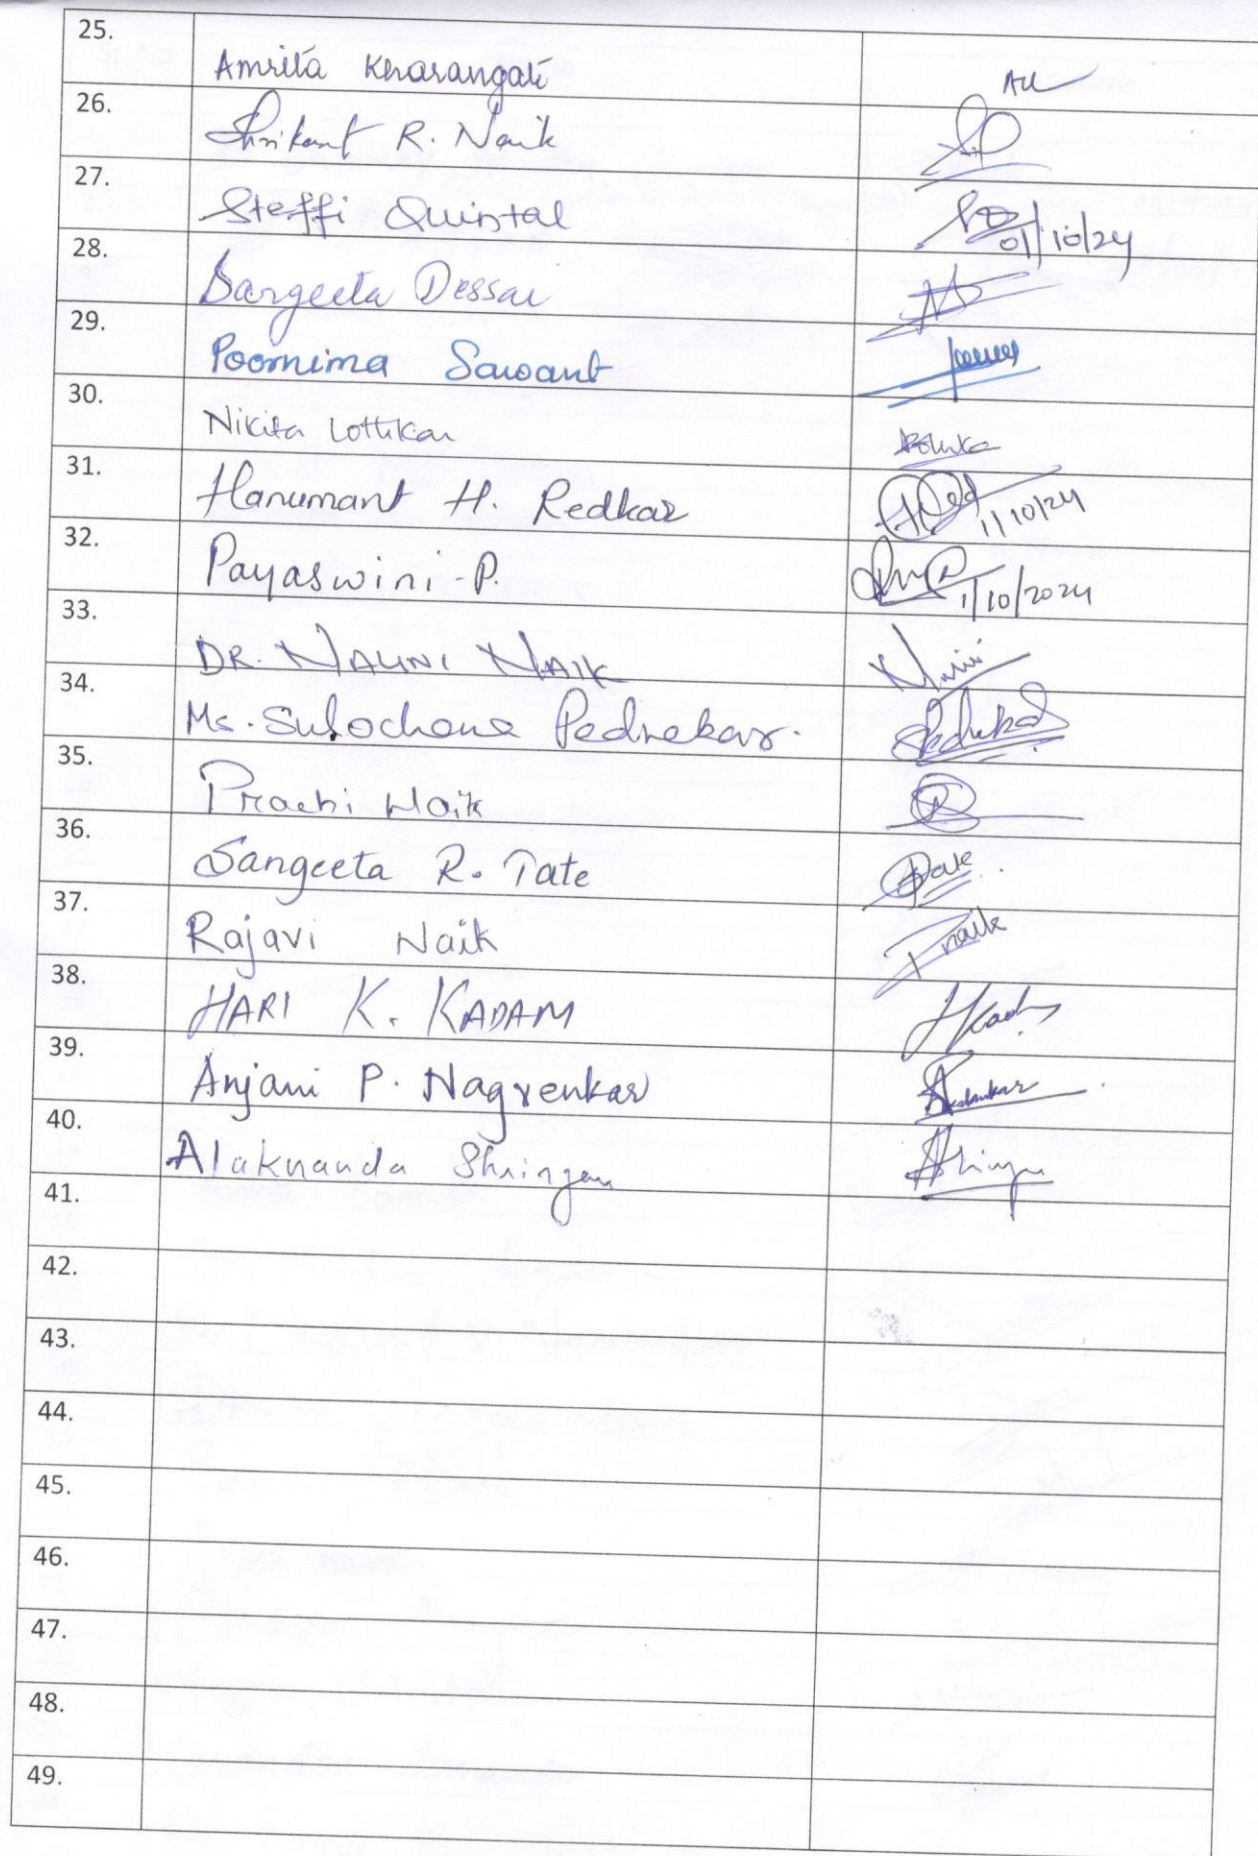 25. Amrita Kharangate
26. Shrikant R. Naik
27. Steffi Quintal 01/10/24
28. Sangeeta Dessai
29. Poornima Sawant
30. Nikita Lotlikar
31. Hanumant H. Redkar 1/10/24
32. Payaswini - P. 1/10/2024
33. DR. NALINI NAIK
34. Ms. Sulochana Pednekar.
35. Prachi Naik
36. Sangeeta R. Tate
37. Rajavi Naik
38. HARI K. KADAM
39. Anjani P. Nagvenkar
40. Alaknanda Shringare
41.
42.
43.
44.
45.
46.
47.
48.
49.